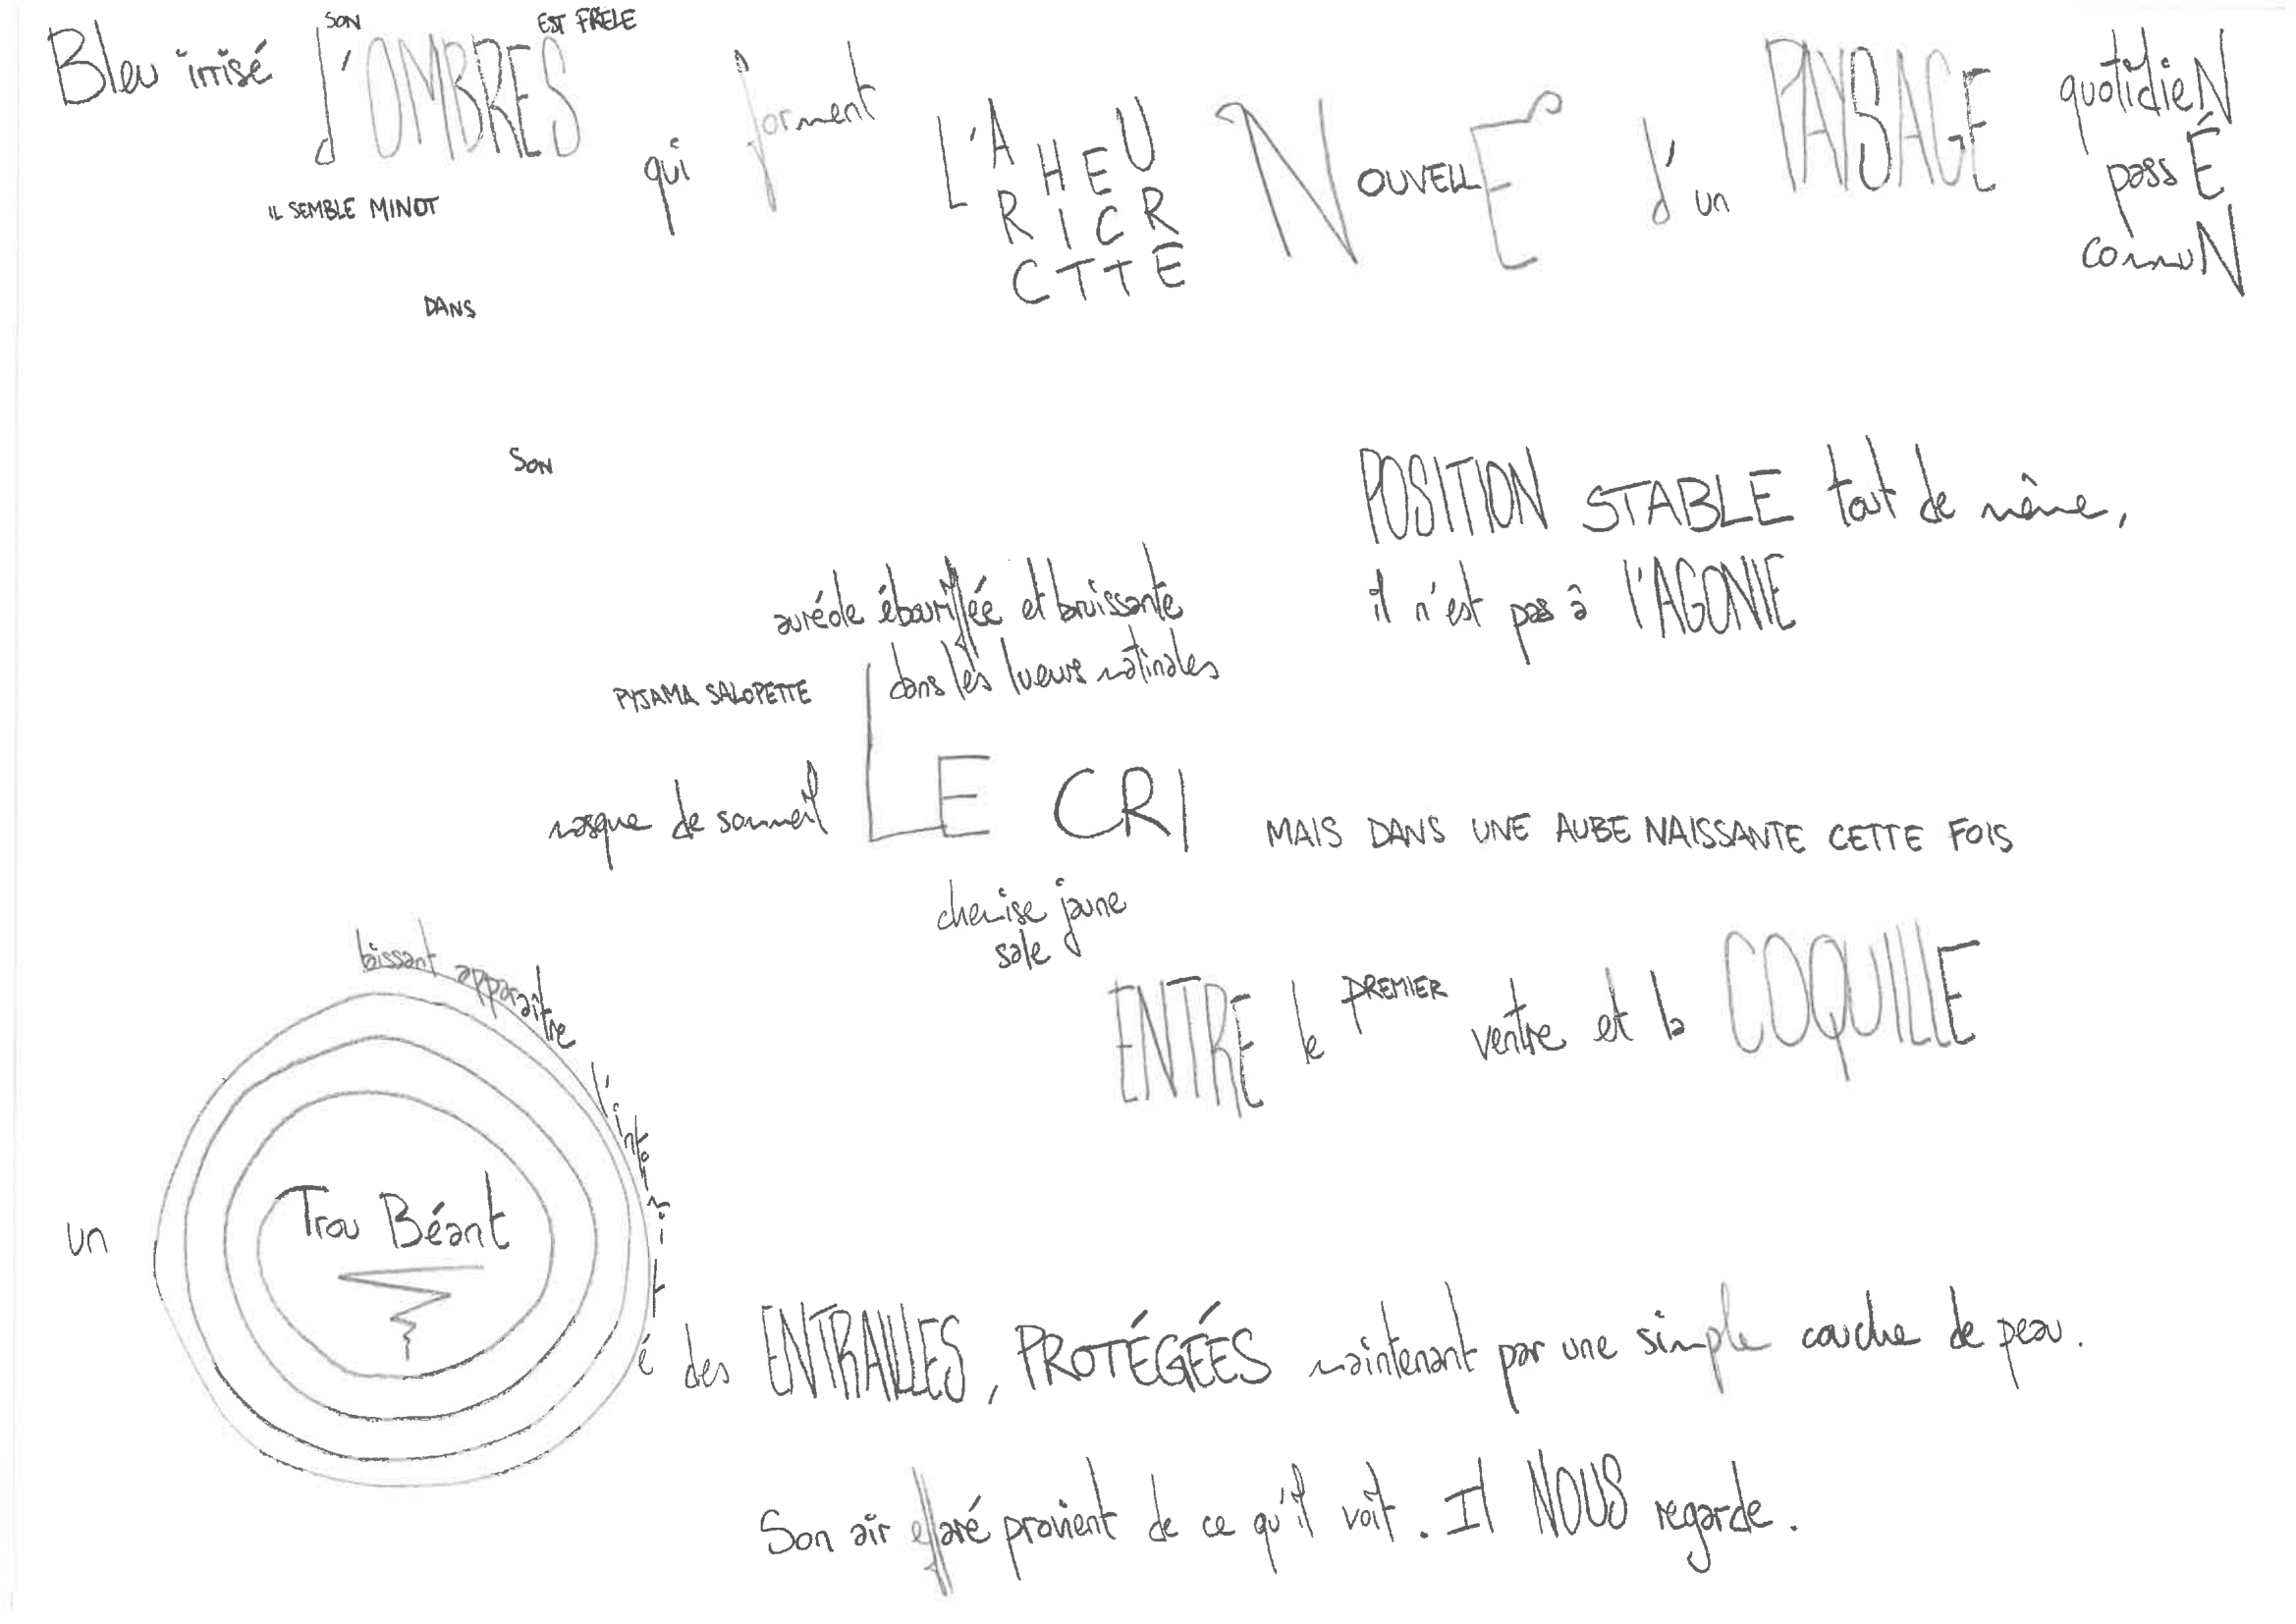 SON EST FRÊLE
Bleu irisé d'OMBRES qui forment L'ARCHITECTURE NOUVELLE d'un PAYSAGE quotidieN
passÉ
connuN
IL SEMBLE MINOT
DANS
SON
POSITION STABLE tout de même,
il n'est pas à l'AGONIE
auréole ébouriffée et bruissante
dans les lueurs matinales
PYJAMA SALOPETTE
masque de sommeil
LE CRI MAIS DANS UNE AUBE NAISSANTE CETTE FOIS
chemise jaune
sale
ENTRE le PREMIER ventre et la COQUILLE
un Trou Béant
laissant apparaître l'intimité des ENTRAILLES, PROTÉGÉES maintenant par une simple couche de peau.
Son air effaré provient de ce qu'il voit. Il NOUS regarde.